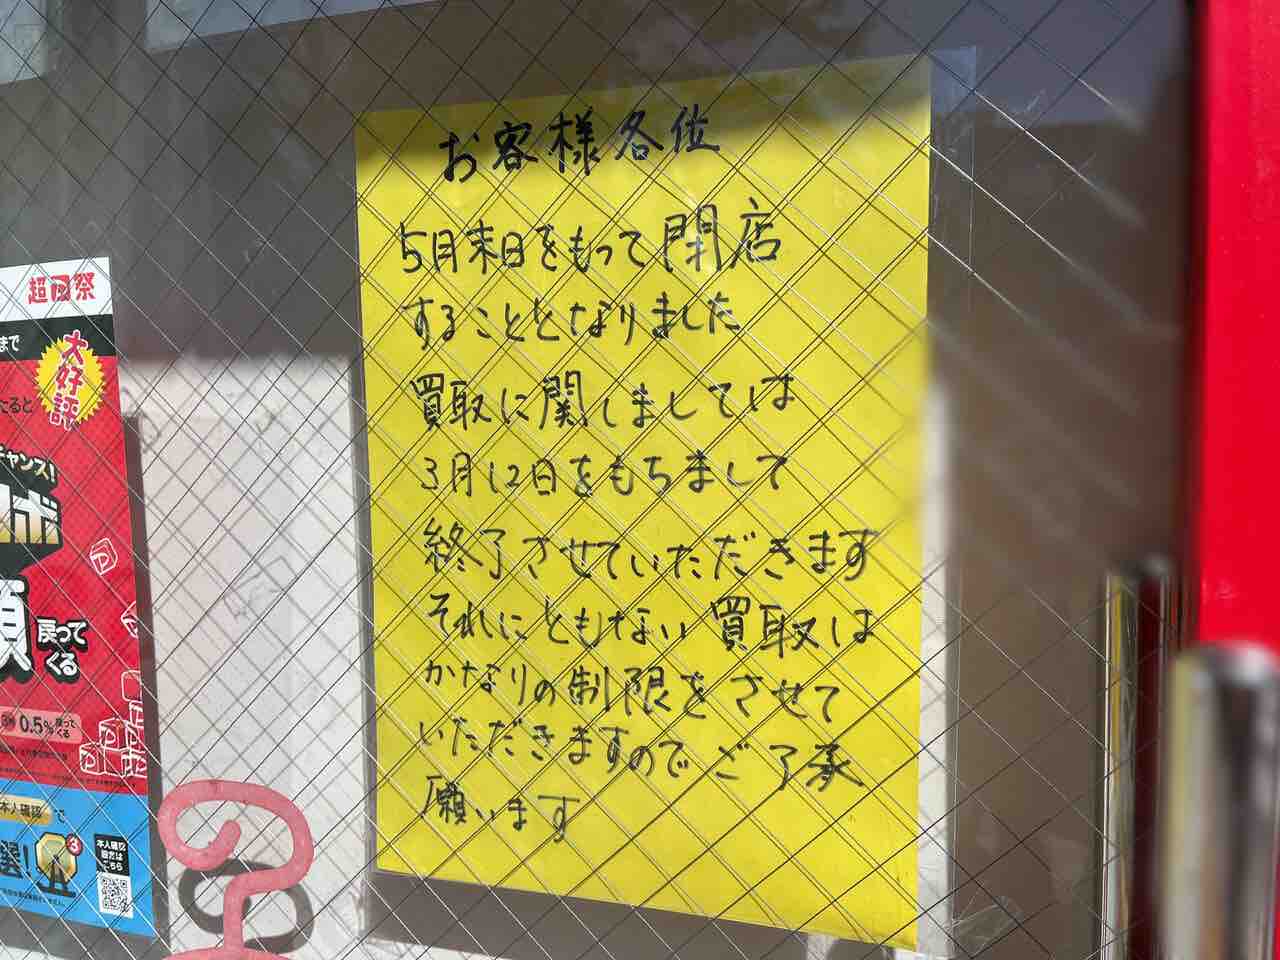 お客様各位
5月末日をもって閉店
することとなりました
買取に関しましては
3月12日をもちまして
終了させていただきます
それにともない買取は
かなりの制限をさせて
いただきますのでご了承
願います
超 祭
まで
大好評
たると
チャンス!
ボ
戻って
くる
0.5% 戻って
くる
本人確認 で
選!
3
本人確認
設定は
こちら